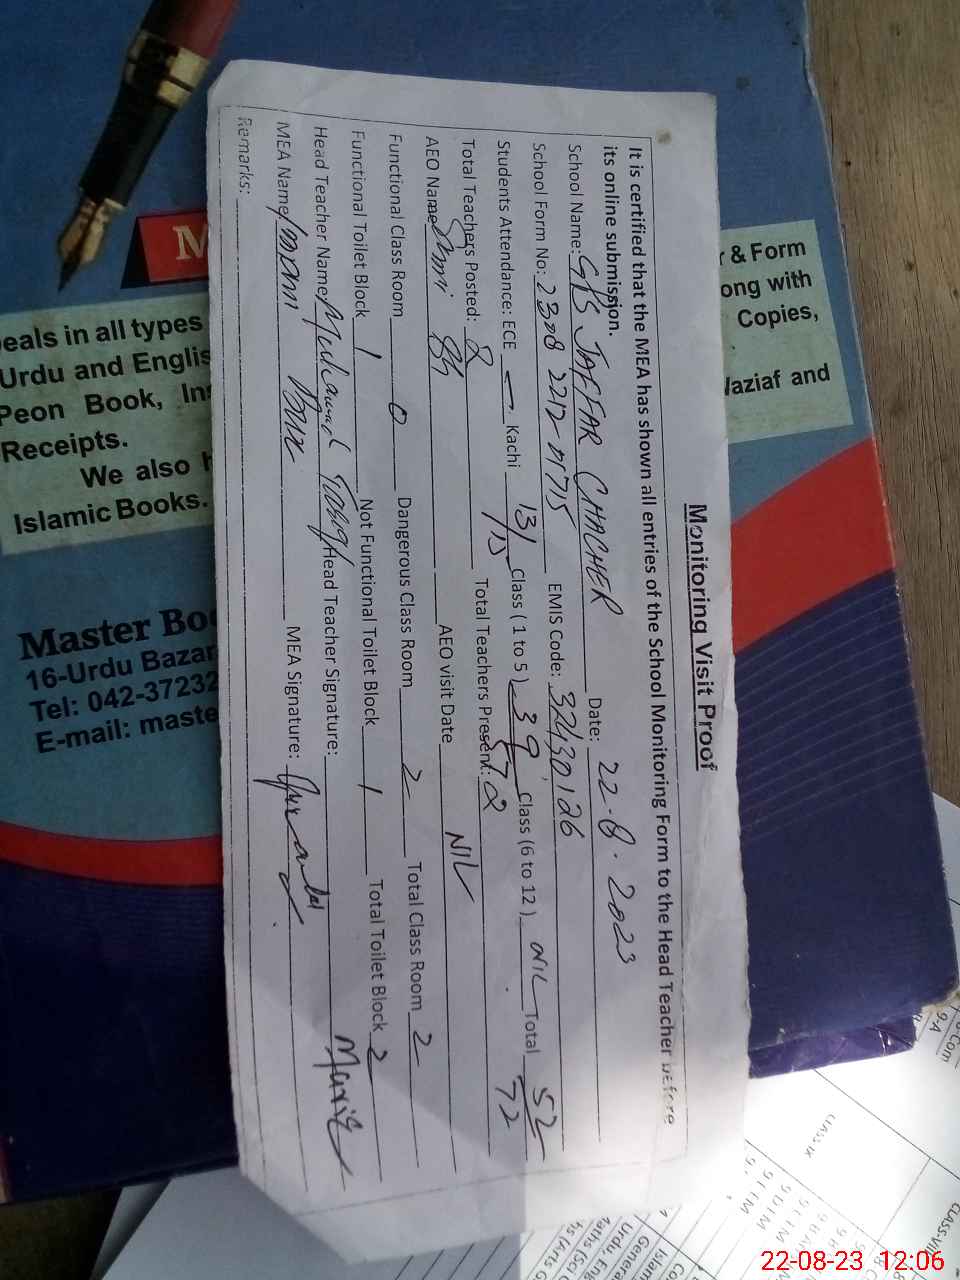 Monitoring Visit Proof
It is certified that the MEA has shown all entries of the School Monitoring Form to the Head Teacher before
its online submission.
School Name: GPS JAFFAR CHACHER Date: 22-8-2023
School Form No: 2308 2212 01715 EMIS Code: 32430126
Students Attendance: ECE — Kachi 13/15 Class ( 1 to 5 ) 39/57 Class (6 to 12) NIL Total 52/72
Total Teachers Posted: 2 Total Teachers Present: 2
AEO Name AEO visit Date NIL
Functional Class Room 0 Dangerous Class Room 2 Total Class Room 2
Functional Toilet Block 1 Not Functional Toilet Block 1 Total Toilet Block 2
Head Teacher Name Muhammad Head Teacher Signature:
MEA Name Imam Bux MEA Signature:
Remarks:
M
r & Form
ong with
Copies,
Waziaf and
eals in all types
Urdu and Englis
Peon Book, In
Receipts.
We also h
Islamic Books.
Master Bo
16-Urdu Bazar
Tel: 042-37232
E-mail: maste
9-A
CLASS-IX
CLASS-VIII
22-08-23 12:06